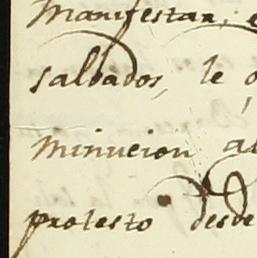 Manifestar, e
saldados, le o
minucion al
protesto desde